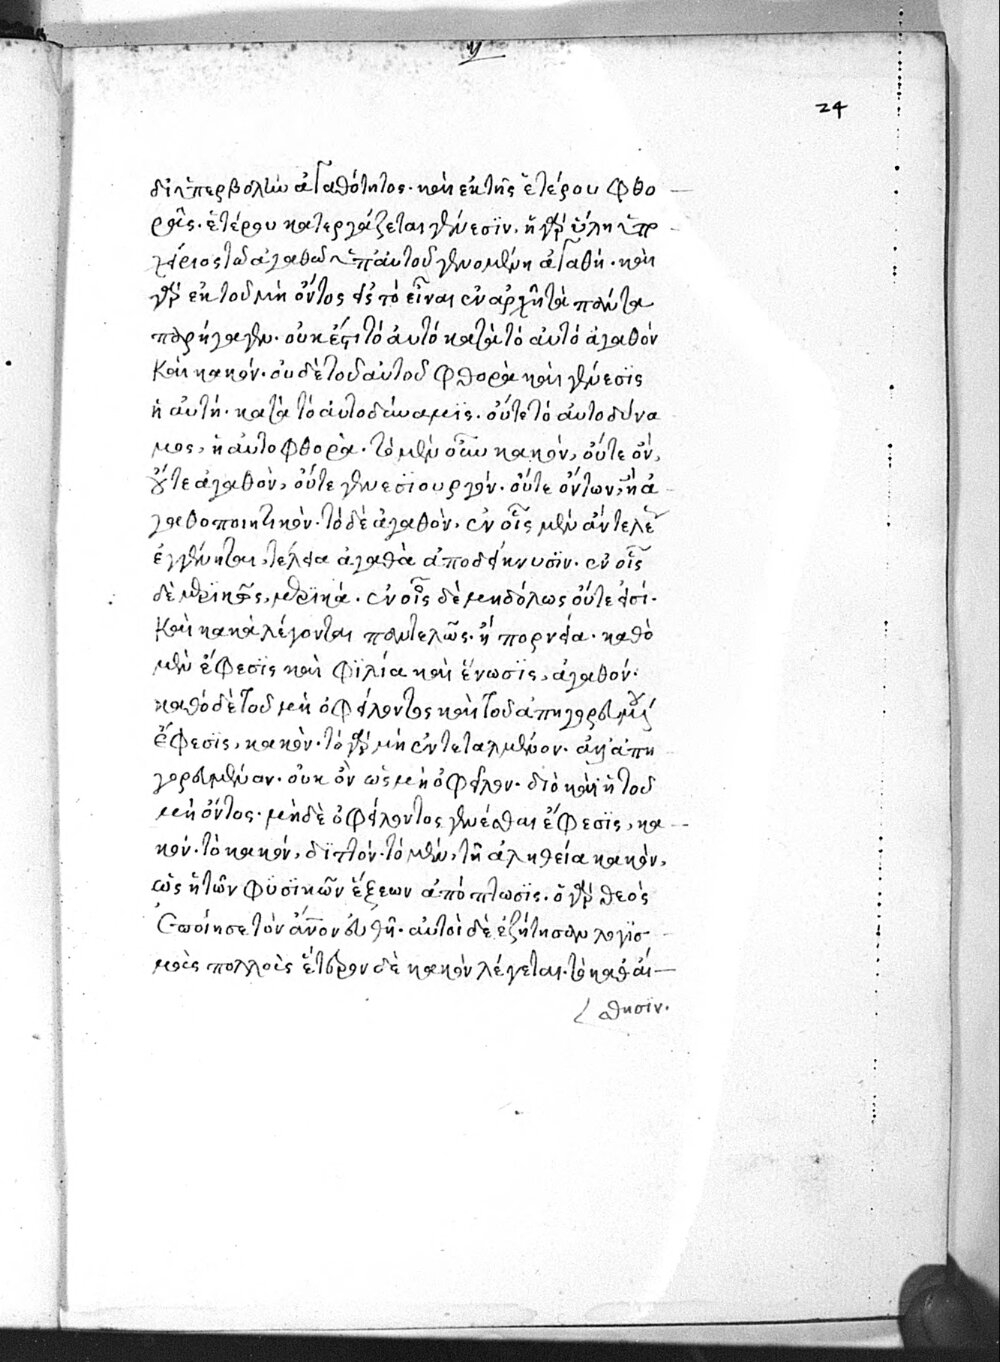 γ
24
δι' ὑπερβολὴν ἀγαθότητος· καὶ ἐκ τῆς ἑτέρου φθο
ρᾶς· ἑτέρου κατεργάζεται γένεσιν. ἡ γὰρ ὕλη ὑπ
αὐτοῦ γενομένη ἀγαθή· καὶ
γὰρ ἐκ τοῦ μὴ ὄντος εἰς τὸ εἶναι ἐν ἀρχῇ τὰ πάντα
παρήγαγεν. οὐκ ἔστι τὸ αὐτὸ κατὰ τὸ αὐτὸ ἀγαθὸν
καὶ κακόν. οὐδὲ τοῦ αὐτοῦ φθορὰ καὶ γένεσϊς
ἡ αὐτή· κατὰ τὸ αὐτὸ δύναμϊς. οὔτε τὸ αὐτοδύνα
μος, ἡ αὐτοφθορὰ· τὸ μὲν οὖν κακὸν, οὔτε ὂν,
οὔτε ἀγαθὸν, οὔτε γενεσϊουργόν. οὔτε ὄντων, ἢ ἀ
γαθοποιητικόν. τὸ δὲ ἀγαθὸν, ἐν οἷς μὲν ἂν τελέως
ἐγγένηται, τέλεια ἀγαθὰ ἀποδείκνυσϊν. ἐν οἷς
δὲ μερικῶς, μερϊκά. ἐν οἷς δὲ μηδόλως οὔτε εἰσί.
καὶ κακὰ λέγονται παντελῶς. ἡ πορνεία· καθὸ
μὲν ἔφεσϊς καὶ φϊλία καὶ ἕνωσϊς, ἀγαθόν.
καθὸ δὲ τοῦ μὴ ὀφείλοντος καὶ τοῦ ἀπηγορευμένου
ἔφεσϊς, κακὸν. τὸ γὰρ μὴ ἐντεταλμένον. ἀλλ' ἀπη
γορευμένον. οὐκ ὂν ὡς μὴ ὀφεῖλον. διὸ καὶ ἡ τοῦ
μὴ ὄντος. μηδὲ ὀφείλοντος γενέσθαι ἔφεσϊς, κα
κόν. τὸ κακόν, διττόν. τὸ μὲν, τῇ ἀληθείᾳ κακὸν,
ὡς ἡ τῶν φυσϊκῶν ἕξεων ἀπόπτωσϊς. ὁ γὰρ θεὸς
ἐποίησε τὸν ἄνθρωπον εὐθῆ. αὐτοὶ δὲ ἐζήτησαν λογϊσ
μοὺς πολλοὺς ἕτερον δὲ κακὸν λέγεται. τὸ καθ' αἴ
σθησϊν.